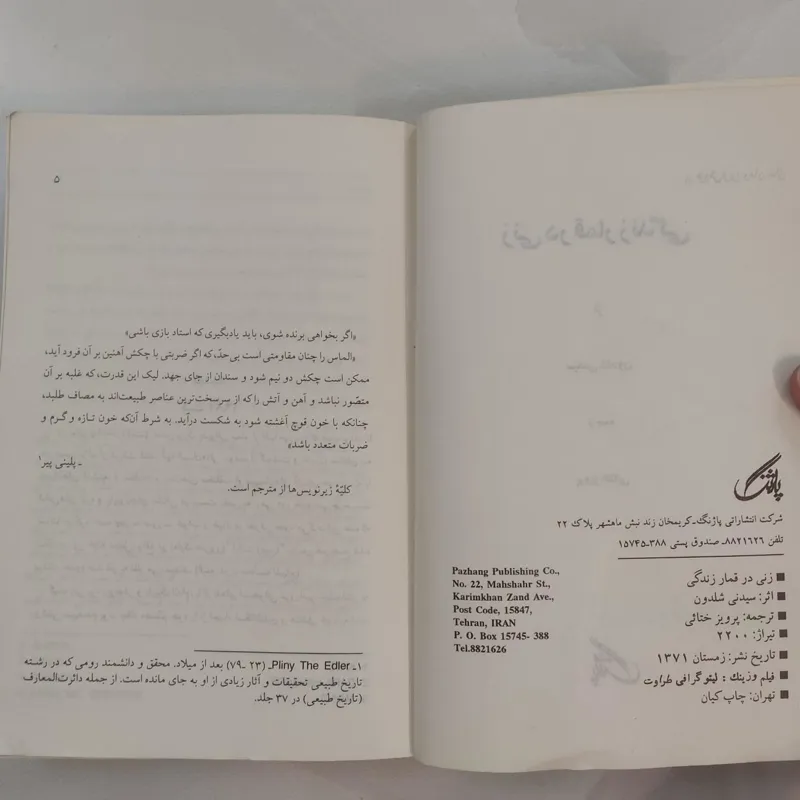 پاژنگ
شرکت انتشاراتی پاژنگ-کریمخان زند نبش ماهشهر پلاک ۲۲
تلفن ۸۸۲۱۶۲۶ـ صندوق پستی ۳۸۸ـ۱۵۷۴۵
Pazhang Publishing Co.,
No. 22, Mahshahr St.,
Karimkhan Zand Ave.,
Post Code, 15847,
Tehran, IRAN
P. O. Box 15745- 388
Tel.8821626
■ زنی در قمار زندگی
■ اثر: سیدنی شلدون
■ ترجمه: پرویز ختائی
■ تیراژ: ۲۲۰۰
■ تاریخ نشر: زمستان ۱۳۷۱
■ فیلم وزینك : لیتوگرافی طراوت
■ تهران: چاپ کیان
۵
«اگر بخواهی برنده شوی، باید یادبگیری که استاد بازی باشی»
«الماس را چنان مقاومتی است بی‌حدّ،که اگر ضربتی با چکش آهنین بر آن فرود آید،
ممکن است چکش دو نیم شود و سندان از جای جهد. لیک این قدرت، که غلبه بر آن
متصّور نباشد و آهن و آتش را که از سرسخت‌ترین عناصر طبیعت‌اند به مصاف طلبد،
چنانکه با خون قوچ آغشته شود به شکست درآید. به شرط آن‌که خون تازه و گرم و
ضربات متعدد باشد»
ـ پلینی پیر۱
کلیّهٔ زیرنویس‌ها از مترجم است.
۱ـ Pliny The Edlerـ (۲۳ ـ۷۹) بعد از میلاد. محقق و دانشمند رومی که در رشته
تاریخ طبیعی تحقیقات و آثار زیادی از او به جای مانده است. از جمله دائرت‌المعارف
(تاریخ طبیعی) در ۳۷ جلد.